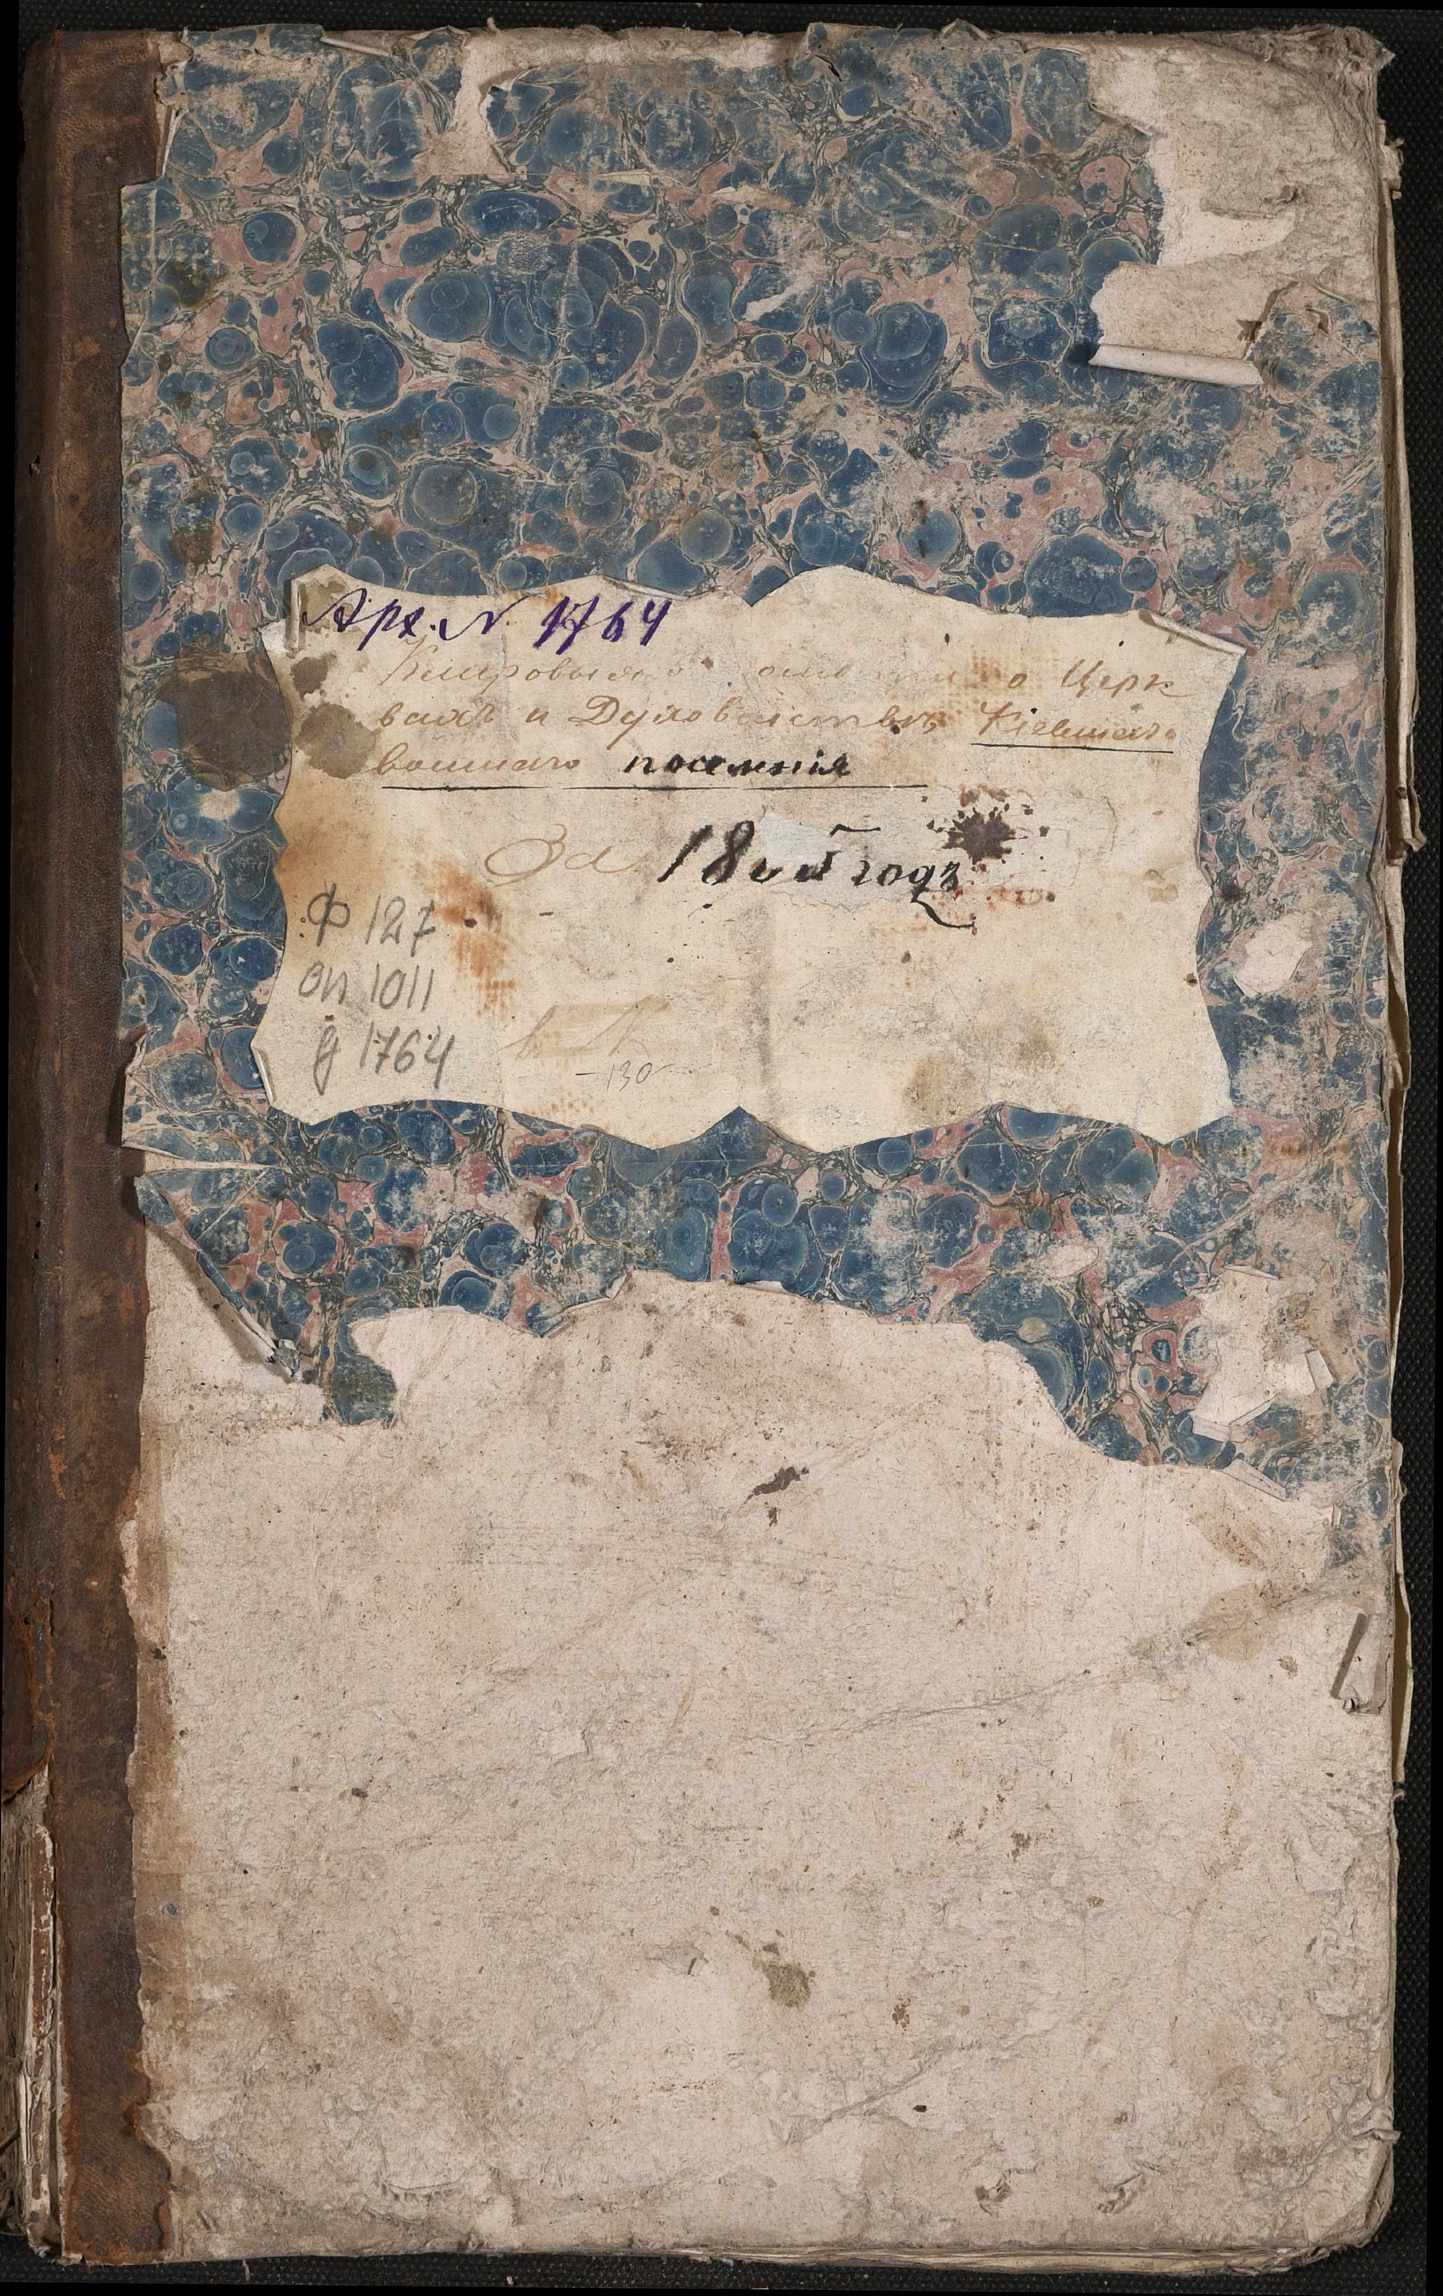 Арх. N. 1764
Клировыя о Церк
вахъ и Духовенствѣ Кіевскаго
военнаго поселенія
За 18 годъ
Ф 127
оп 1011
д 1764
-130-